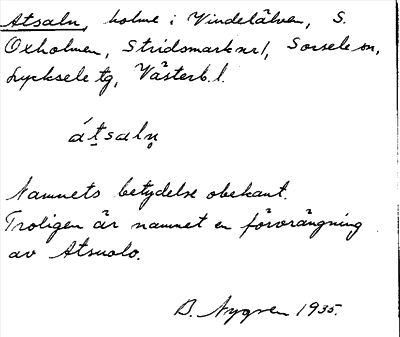 Atsaln, holme i Vindelälven, S.
Oxholmen, Stridsmark nr 1, Sorsele sn,
Lycksele tg, Västerb. l.
átsaln̥
Namnets betydelse obekant.
Troligen är namnet en förvrängning
av Atsuolo.
B. Nygren 1935.